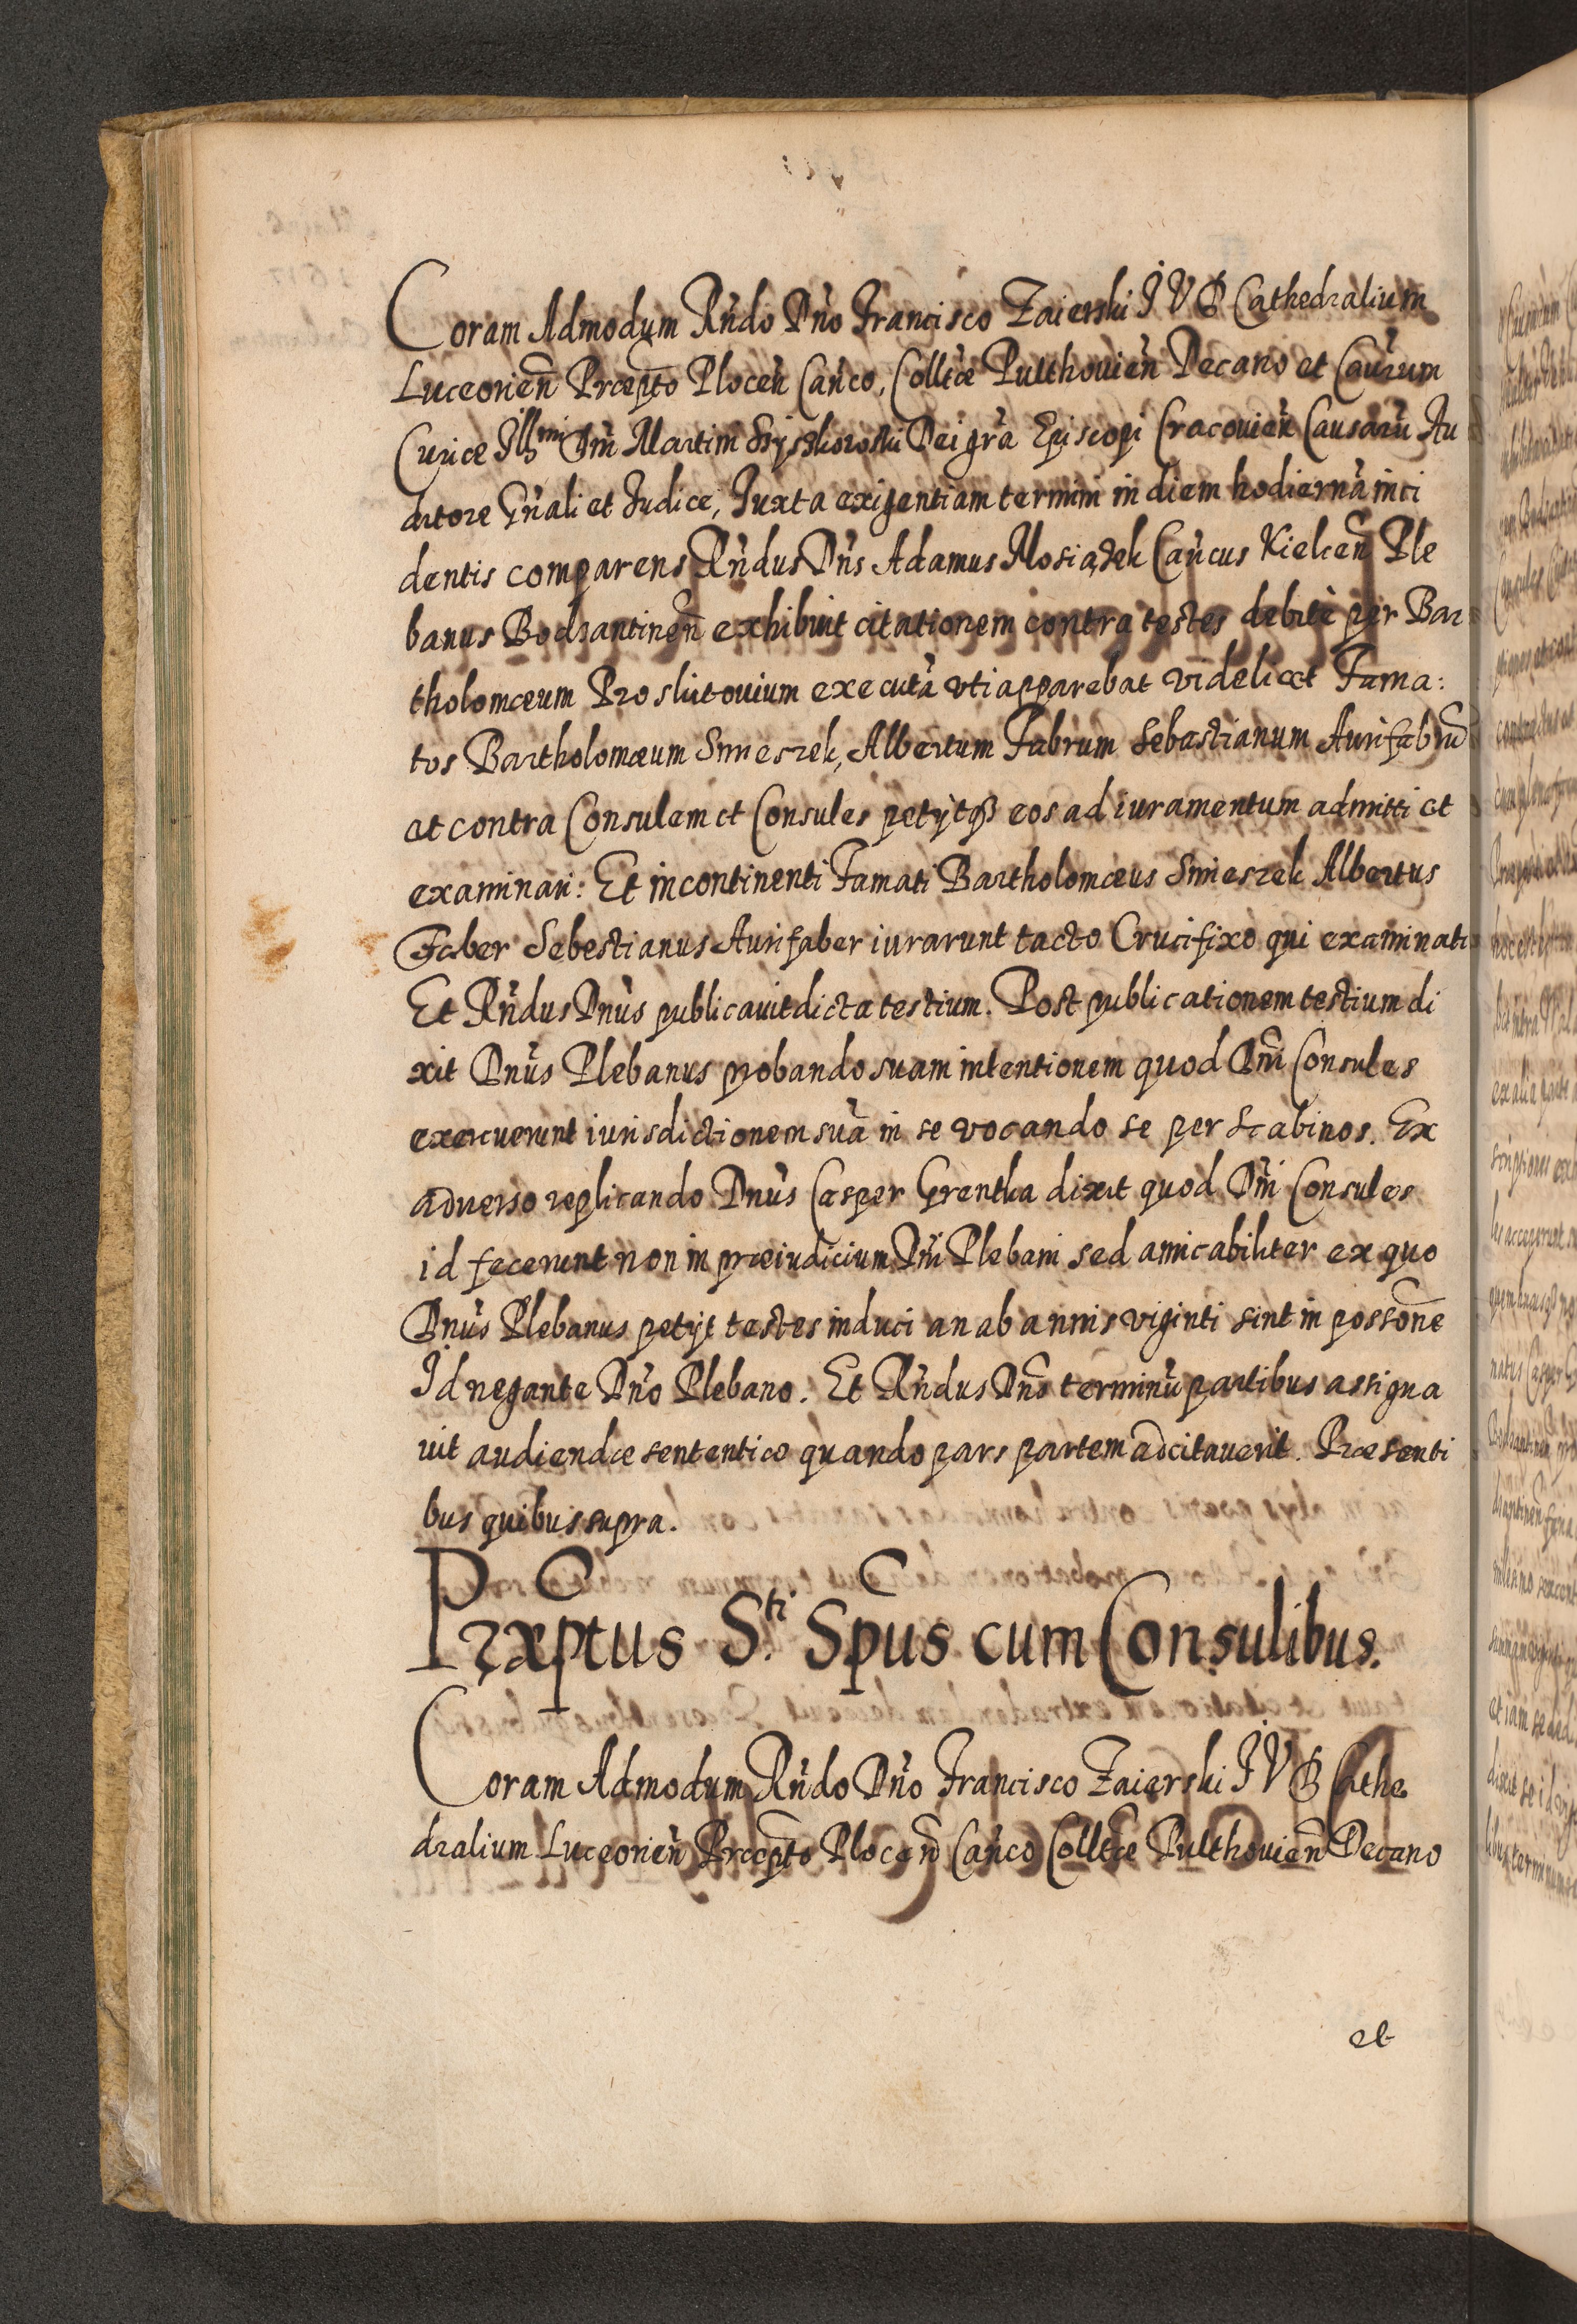 Coram Admodum Rńdo Dńo Francisco Zaierski I V D Cathedralium
Luceorien̄ Præp̄to Plocen̄ Cańco, Coll̄tæ Pulthouien̄ Decano et Cau̇rum
Curiæ Illmi Dn̄i Martini Szyszkowski Dei grȧ Episcopi Cracouien̄ Causarū Au
ditore Gn̄ali et Iudice, Iuxta exigentiam termini in diem hodiernā inci
dentis comparens Rńdus Dn̄s Adamus Mosiądzek Cańcus Kielcen̄ Ple
banus Bodzantinen̄ exhibuit citationem contra testes debitè per Bar
tholomæum Proslutouium executā vti apparebat videlicet Fama:
tos Bartholomæum Smieszek, Albertum Fabrum Sebastianum Aurifabrū
et contra Consulem et Consules petÿtqȝ eos ad iuramentum admitti et
examinari: Et incontinenti Famati Bartholomæus Smieszek Albertus
Faber Sebestianus Aurifaber iurarunt tacto Crucifixo qui examinati
Et Rńdus Dnu̇s publicauit dicta testium. Post publicationem testium di
xit Dnu̇s Plebanus probando suam intentionem quod Dn̄i Consules
exercuerunt iurisdictionem suā in se vocando se per Scabinos. Ex
aduerso replicando Dnu̇s Casper Grentka dixit quod Dn̄i Consules
id fecerunt non in præiudicium Dn̄i Plebani sed amicabiliter ex quo
Dnu̇s Plebanus petÿt testes induci an ab annis viginti sint in possōne
Id negante Dńo Plebano. Et Rńdus Dn̄s terminū partibus assigna
uit audiendæ sententiæ quando pars partem adcitauerit. Præsenti
bus quibus supra.
Præp̄tus S.ti Sp̄us cum Consulibus.
Coram Admodum Rńdo Dńo Francisco Zaierski I V D Cathe
dralium Luceorien̄ Præp̄to Plocen̄ Cańco Coll̄tæ Pulthouien̄ Decano
et